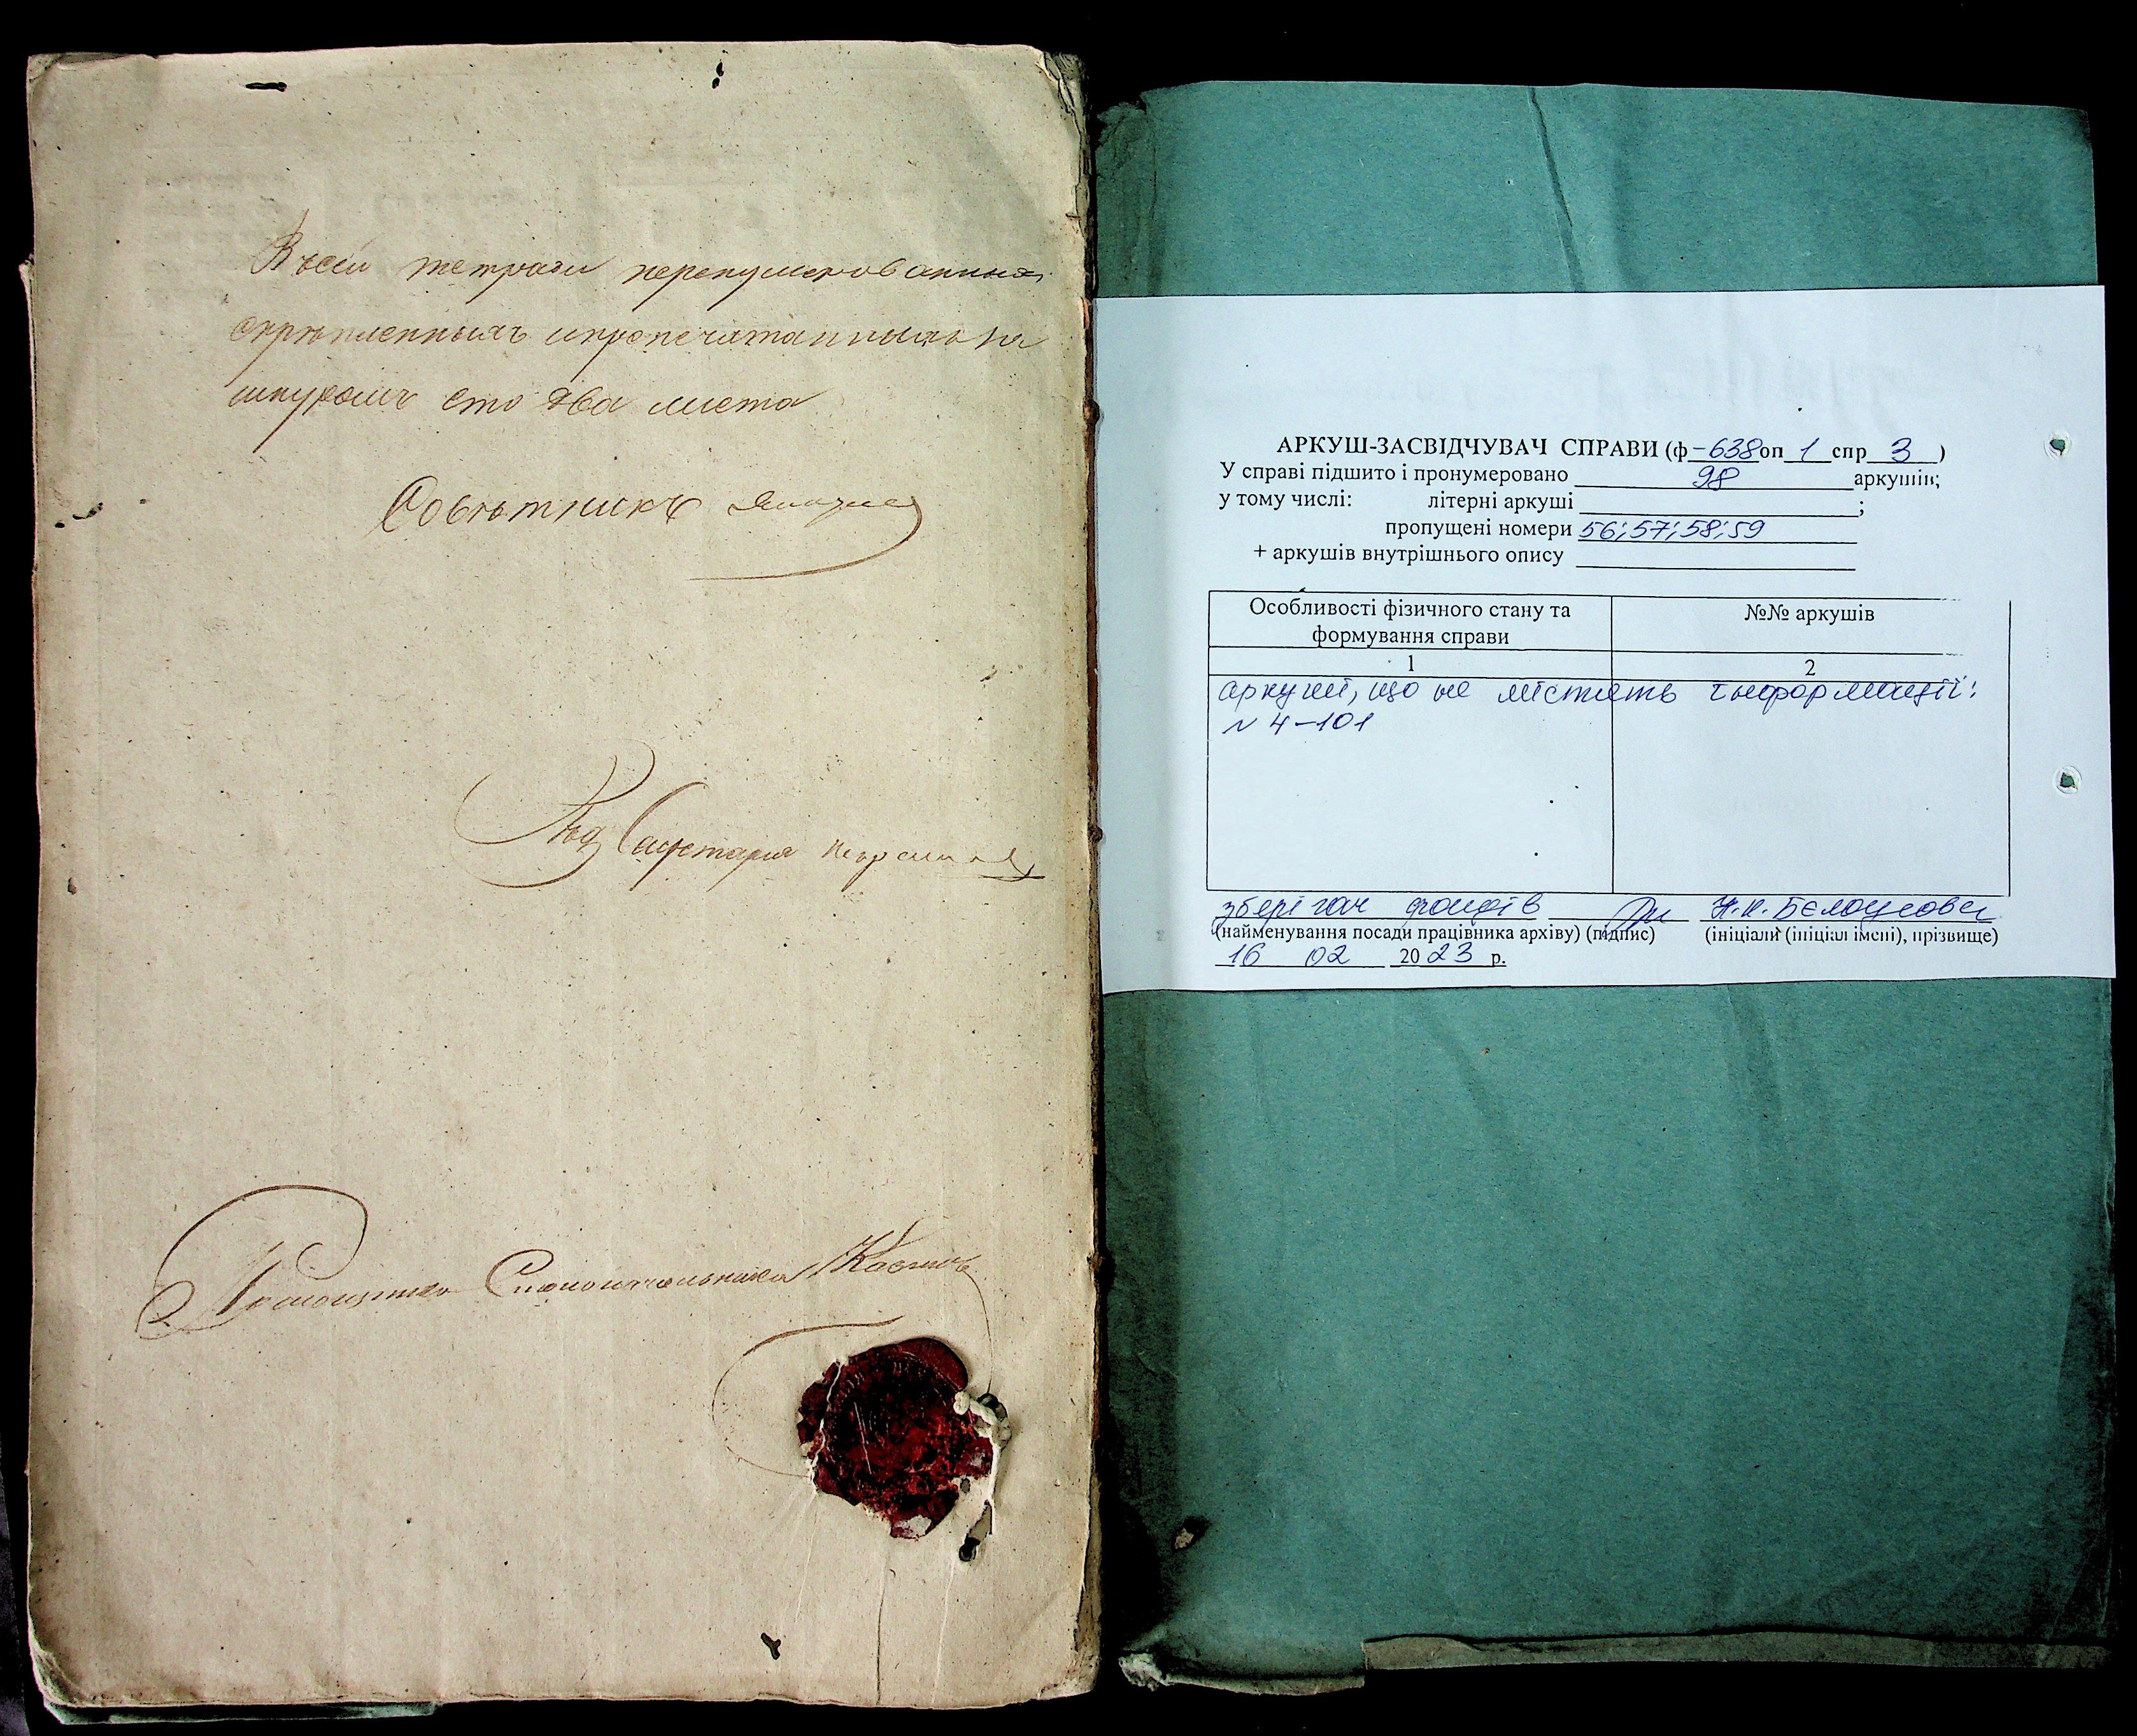 Въсей тетради перенумерованныхъ
скрѣпленныхъ ипропечатанныхъ на
шнуромъ сто два листа
Совѣтникъ
Секретаря
Помощникъ Столоначальника
АРКУШ-ЗАСВІДЧУВАЧ СПРАВИ (ф -638 оп 1 спр 3 )
У справі підшито і пронумеровано 98 аркушів;
у тому числі: літерні аркуші ;
пропущені номери 56; 57; 58; 59
+ аркушів внутрішнього опису
Особливості фізичного стану та
формування справи
№№ аркушів
1 2
аркуші, що не містять інформації:
№ 4-101
зберігач фондів Н.И. Бєлоусова
(найменування посади працівника архіву) (підпис) (ініціали (ініціал імені), прізвище)
16 02 2023 р.